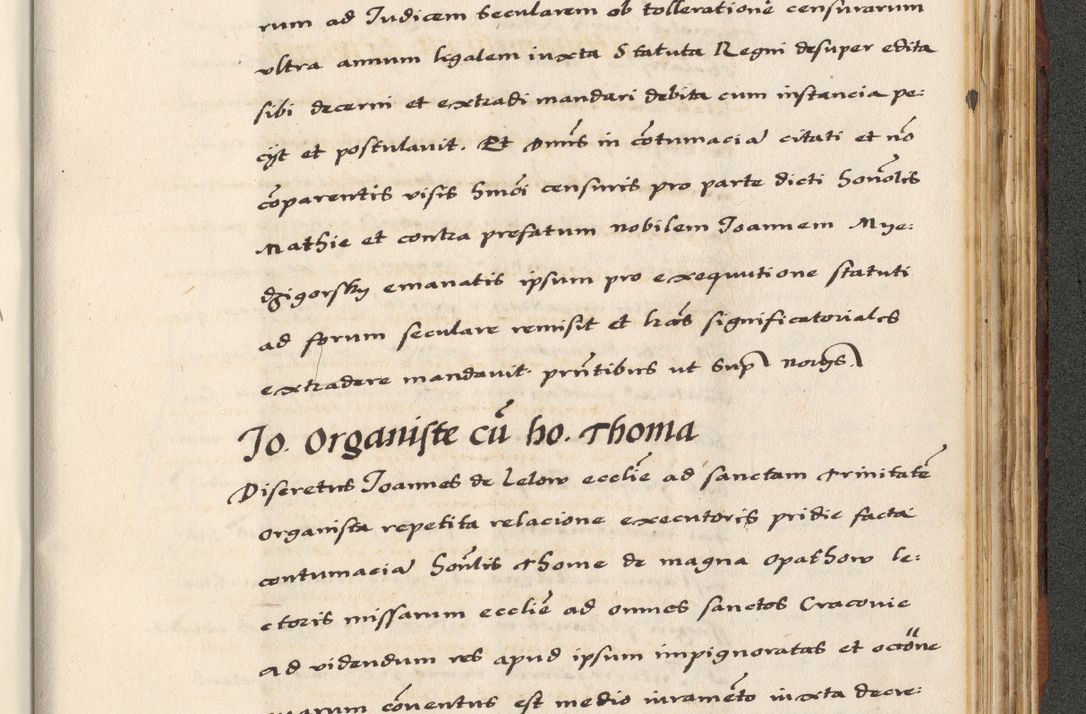 rum ad Iudicem Secularem ob tolleratione͂ censurarum
vltra annum legalem iuxta Statuta Regni desuper edita
sibi decerni et extradi mandari debita cum instancia pe:
cÿt et postulauit. Et Dnūs in cōtumaciā citati et nō
cōparentis visis hmōi censuris pro parte dicti honōlis
Mathie et contra prefatum nobilem Joannem Mye:
dzigorsky emanatis ipsum pro exequutione statuti
ad forum seculare remisit et lrās significatoriales
extradere mandauit. prn̄tibus ut Sup norēis.
Jo. Organiste cū ho. Thoma
Discretus Joannes de Lelow ecclīe ad sanctam Trinitatē
organista repetita relacione executoris pridie facta
contumaciā honīlis Thome de magna Opathow le:
ctoris missarum ecclīe ad omnes sanctos Cracouie
ad videndum res apud ipsum impignoratas et
quarum cōuentus est medio iuramēto iuxta decre: